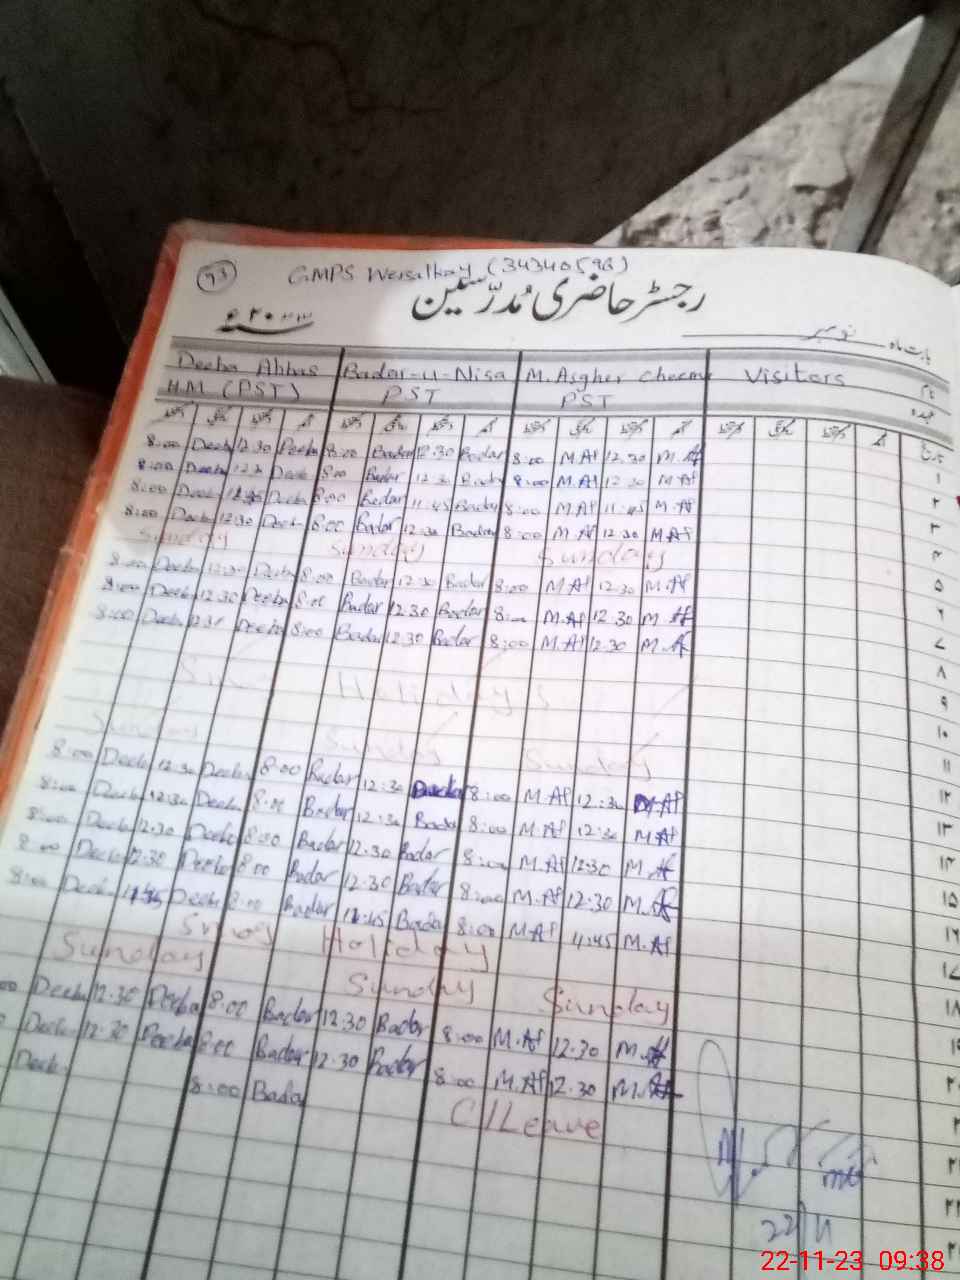 93
GMPS Wersalkay (34340596)
رجسٹر حاضری مُدرّسین
۲۰۲۳ء
بابت ماہ نومبر
Deeba Abbas Badar-u-Nisa M. Asgher cheema Visitors نام
H.M (PST) PST PST عہدہ
تاریخ
8:00 Deeba 12.30 Deeba 8:00 Badar 12.30 Badar 8:00 M.Af 12.30 M.Af ۱
8:00 Deeba 12.30 Deeba 8:00 Badar 12.30 Badar 8:00 M.Af 12.30 M.Af ۲
8:00 Deeba Deeba 8:00 Badar 11:45 Badar 8:00 M.Af 11:45 M.Af ۳
8:00 Deeba 12.30 Deeba 8:00 Badar 12.30 Badar 8:00 M.Af 12.30 M.Af ۴
Sunday Sunday Sunday ۵
8:00 Deeba 12.30 Deeba 8:00 Badar 12.30 Badar 8:00 M.Af 12.30 M.Af ۶
8:00 Deeba 12.30 Deeba 8:00 Badar 12.30 Badar 8:00 M.Af 12.30 M.Af ۷
8:00 Deeba 12.30 Deeba 8:00 Badar 12.30 Badar 8:00 M.Af 12.30 M.Af ۸
۹
Holidays ۱۰
۱۱
Sunday Sunday Sunday ۱۲
8:00 Deeba 12.30 Deeba 8:00 Badar 12.30 8:00 M.Af 12.30 M.Af ۱۳
8:00 Deeba 12.30 Deeba 8:00 Badar 12.30 Badar 8:00 M.Af 12.30 M.Af ۱۴
8:00 Deeba 12.30 Deeba 8:00 Badar 12.30 Badar 8:00 M.Af 12.30 M.Af ۱۵
8:00 Deeba 12.30 Deeba 8:00 Badar 12.30 Badar 8:00 M.Af 12.30 M.Af ۱۶
8:00 Deeba Deeba 8:00 Badar 11:45 Badar 8:00 M.Af 11:45 M.Af ۱۷
Smog Holiday ۱۸
Sunday Sunday Sunday ۱۹
Deeba 12.30 Deeba 8:00 Badar 12.30 Badar 8:00 M.Af 12.30 M.Af ۲۰
Deeba 12.30 Deeba 8:00 Badar 12.30 Badar 8:00 M.Af 12.30 M.Af ۲۱
Deeba 8:00 Badar C/Leave
22/11
22-11-23 09:38